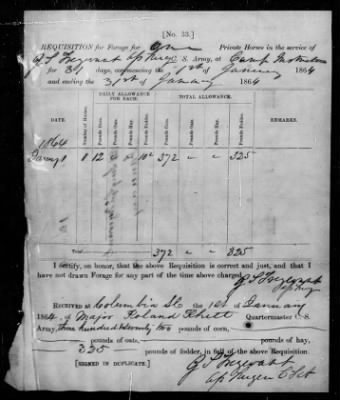 [No. 33.]
REQUISITION for Forage for One Private Horses in the service of
G S Trezevant A Surg C. S. Army, at Camp Instruction
for 31 days, commencing the 1st of January 1864
and ending the 31st of January 1864
DAILY ALLOWANCE FOR EACH. TOTAL ALLOWANCE
DATE. Number of Horses. Pounds Corn. Pounds Oats. Pounds Hay. Pounds Fodder. Pounds Corn. Pounds Oats. Pounds Hay. Pounds Fodder. REMARKS.
1864
Jany 1 1 12 " " 10 1/2 372 " " 325
Total 372 " " 325
I certify, on honor, that the above Requisition is correct and just, and that I
have not drawn Forage for any part of the time above charged.
G S Trezevant
A Surg
RECEIVED at Columbia So Ca the 1st of January
1864, of Major Roland Rhett Quartermaster C. S.
Army, Three hundred & seventy two pounds of corn,
pounds of oats, pounds of hay,
325 pounds of fodder, in full of the above Requisition.
[SIGNED IN DUPLICATE.] G S Trezevant
A Surgen C S A